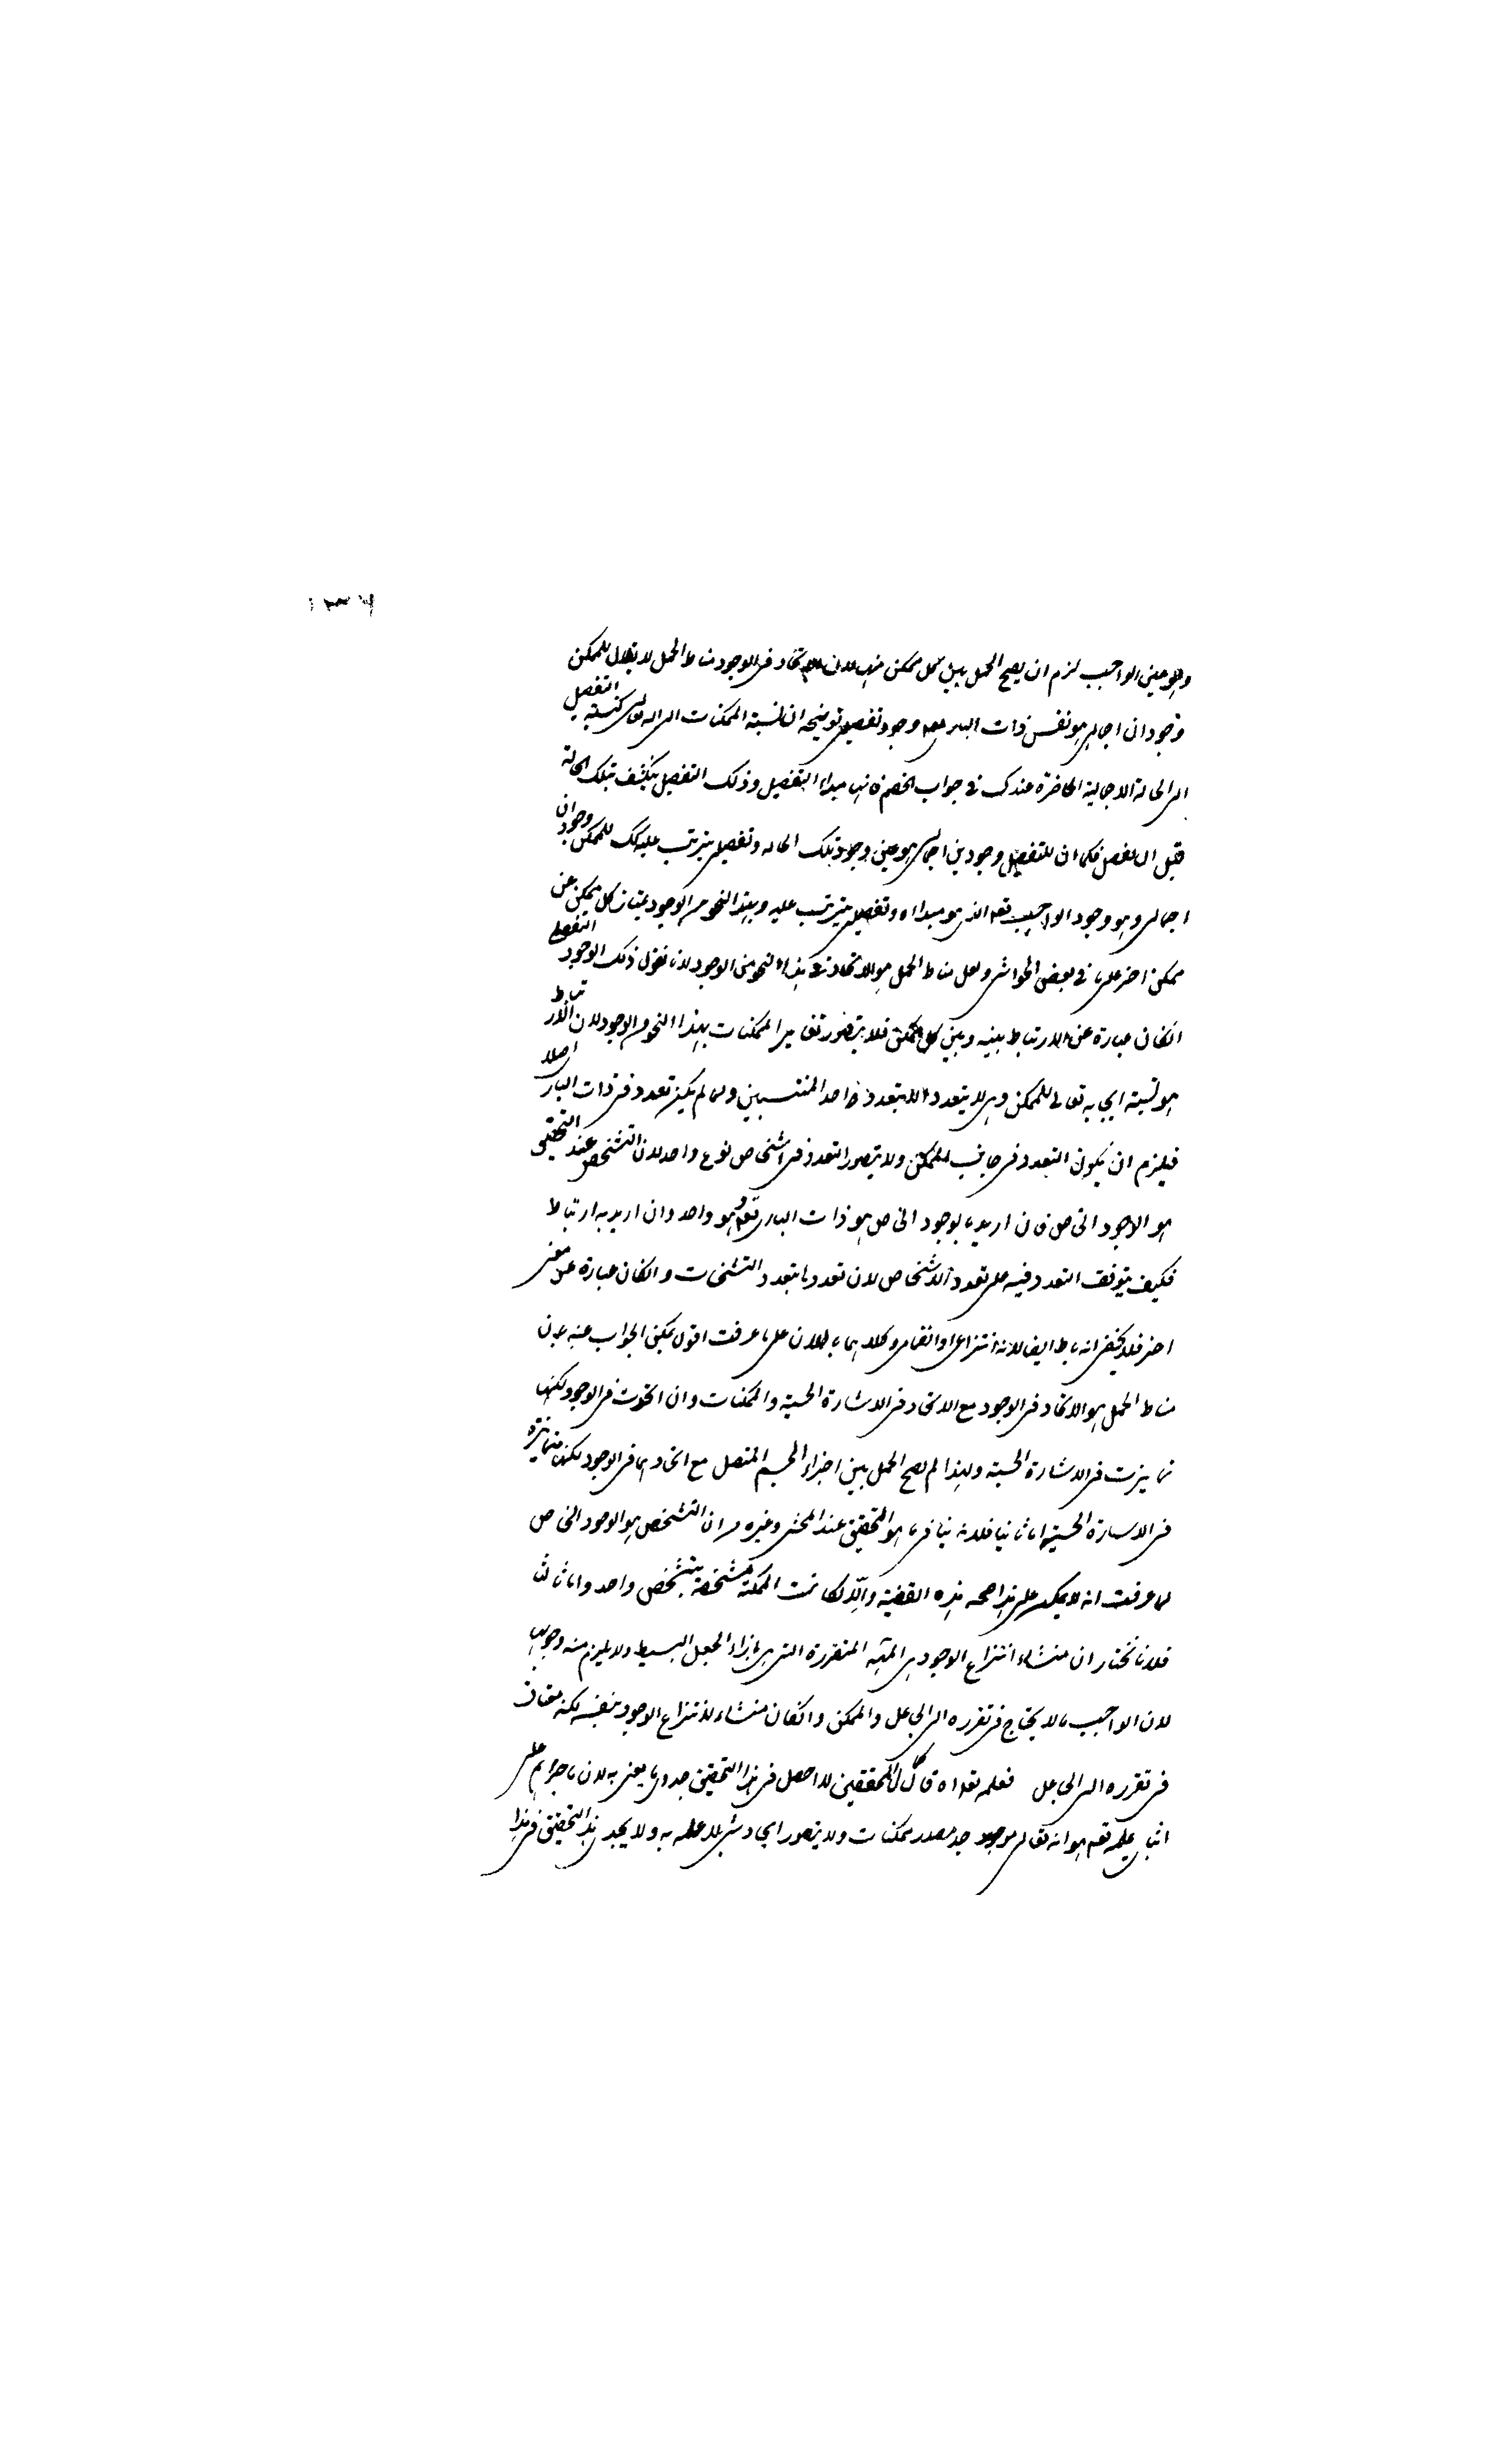 وهو عين الواجب لزم ان يصح الحمل بين كل ممكن منها لان الاتحاد فى الوجود مناط الحمل لا يقال للممكن
وجودان اجمالى هو نفس ذات البارى تعه وجود تفصيلى توضيحه ان نسبة الممكنات الى اله تعالى كنسبة التفصيل
الى الحالة الاجمالية الحاضرة عندك فى جواب الخصم فانها مبداء التفصيل وذلك التفصيل ينكشف بتلك الحالة
قبل ال تفصل فكما ان للتفصيل وجودين اجمالى هو عين وجود تلك الحاله وتفصيلى يترتب عليه كك للممكن وجودان
اجمالى وهو وجود الواجب تعه الذى هو مبداه وتفصيلى يترتب عليه وبهذا النحو من الوجود يمتاز كل ممكن عن
ممكن اخر على ما فى بعض الحواشى ولعل مناط الحمل هو الاتحاد فى هذا النحو من الوجود لانا نقول ذلك الوجود التفصيلى
انكان عبارة عن الارتباط بينه وبين كل ممكن فلا يتصور تغاير الممكنات بهذا النحو من الوجود لان الارتباط
هو نسبة ايجابه تعالى للممكن وهى لا يتعدد الا بتعدد احد المنتسبين ولما لم يكن تعدد فى ذات البارى اصلا
فيلزم ان يكون التعدد فى جانب الممكن ولا يتصور التعدد فى اشخاص نوع واحد لان التشخص عند التحقيق
هو الوجود الخاص فان اريد بالوجود الخاص هو ذات البارى تعه وهو واحد وان اريد به ارتباط
فكيف يتوقف التعدد فيه على تعدد الاشخاص لان تعددها بتعدد التشخصات وانكان عبارة عن معنى
اخر فلا يخفى انه باطل ايضا لانه انتزاعى او انضمامى وكلاهما باطلان على ما عرفت اقول يمكن الجواب عنه بان
مناط الحمل هو الاتحاد فى الوجود مع الاتحاد فى الاشارة الحسية والممكنات وان اتحدت فى الوجود لكنها
تمايزت فى الاشارة الحسية ولهذا لم يصح الحمل بين اجزاء الجسم المتصل مع اتحادها فى الوجود لكنها متمايزة
فى الاسارة الحسية اما ثانيا فلانه ينافى ما هو التحقيق عند المحشى وغيره من ان التشخص هو الوجود الخاص
لما عرفت انه لا يمكن على هذا صحه هذه القضية والا لكانت الممكنة مشخصة بتشخص واحد واما ثالثا
فلانا نختار ان منشاء انتزاع الوجود هى المهية المتقررة التى هى بازاء الجعل البسيط ولا يلزم منه وجوبها
لان الواجب ما لا يحتاج فى تقرره الى الجاعل والممكن وانكان منشاء لانتزاع الوجود بنفسه لكنه محتاج
فى تقرره الى الجاعل فعلمه تعه اه قال المحققين لا حاصل فى هذا التحقيق جدوى ما يعنى به لان ما جرهم على
اثبات علمه تعه هو انه تعالى موجد مصدر ممكنات ولا يتصور ايجاد شى بلا علمه به ولا يجد هذا التحقيق فى هذا